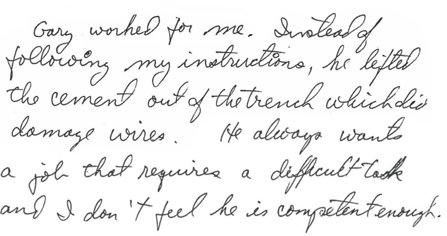 Gary worked for me. Instead of
following my instructions, he lifted
the cement out of the trench which did
damage wires. He always wants
a job that requires a difficult task
and I don't feel he is competent enough.